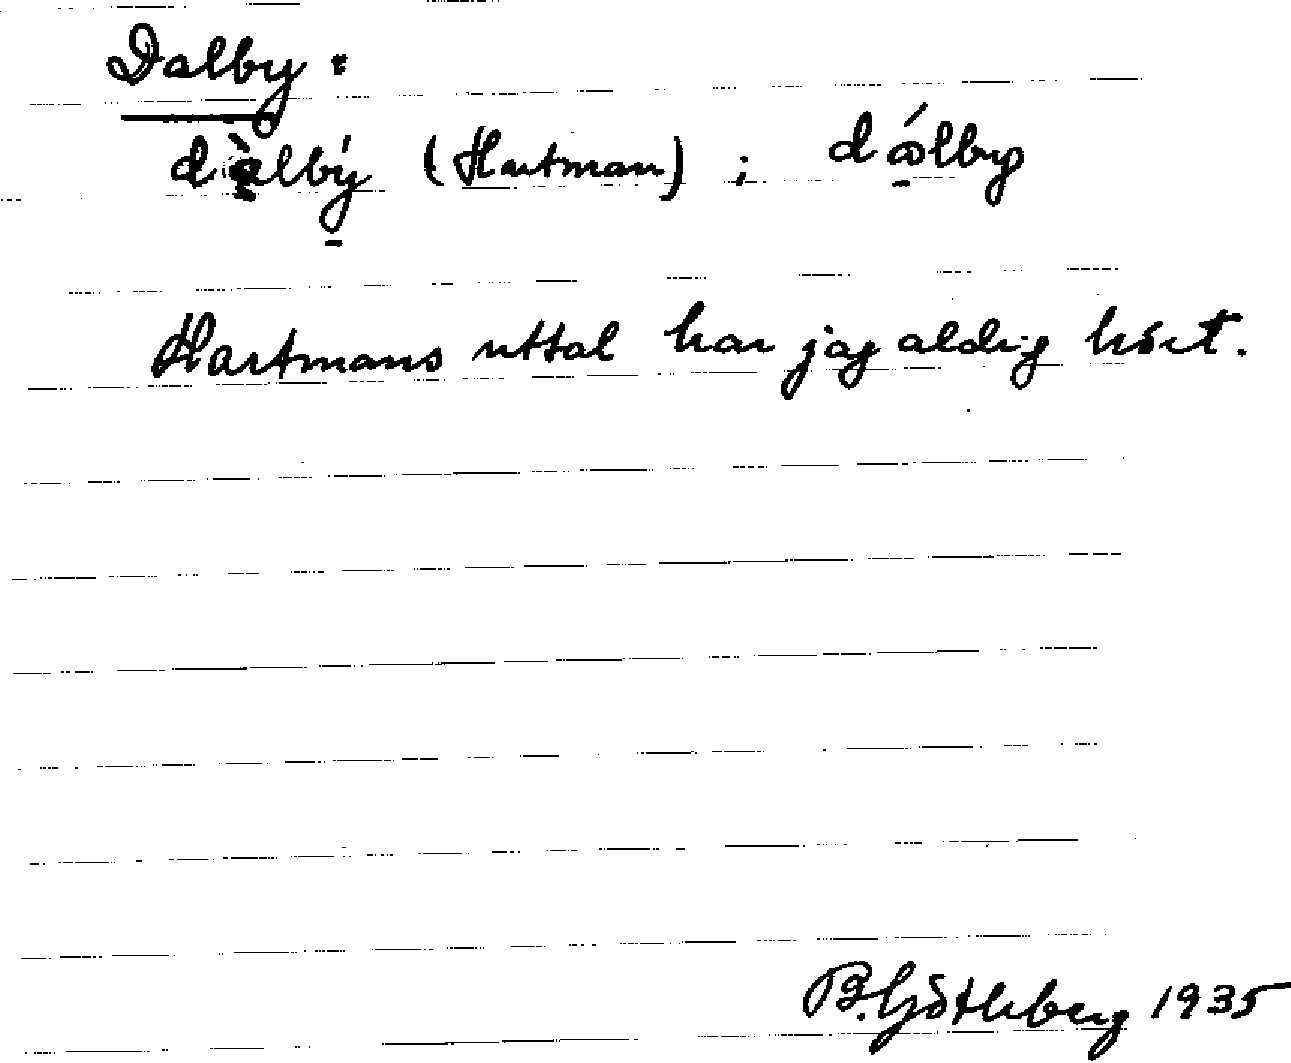 Dalby:
dàlbý (Hartman) ; dǻlby
Hartmans uttal har jag aldrig hört.
B. Götlberg 1935